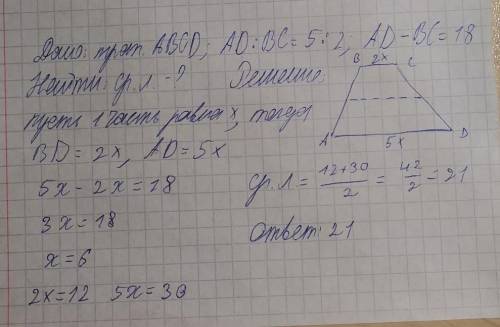 Дано: трап. ABCD; AD:BC=5:2; AD-BC=18
Найти: ср.л -? Решение:
Пусть 1 часть равна x, тогда
BD=2x, AD=5x
5x-2x=18
3x=18
x=6
2x=12 5x=30
B 2x C
A 5x D
ср.л = 12+30/2 = 42/2 = 21
Ответ: 21